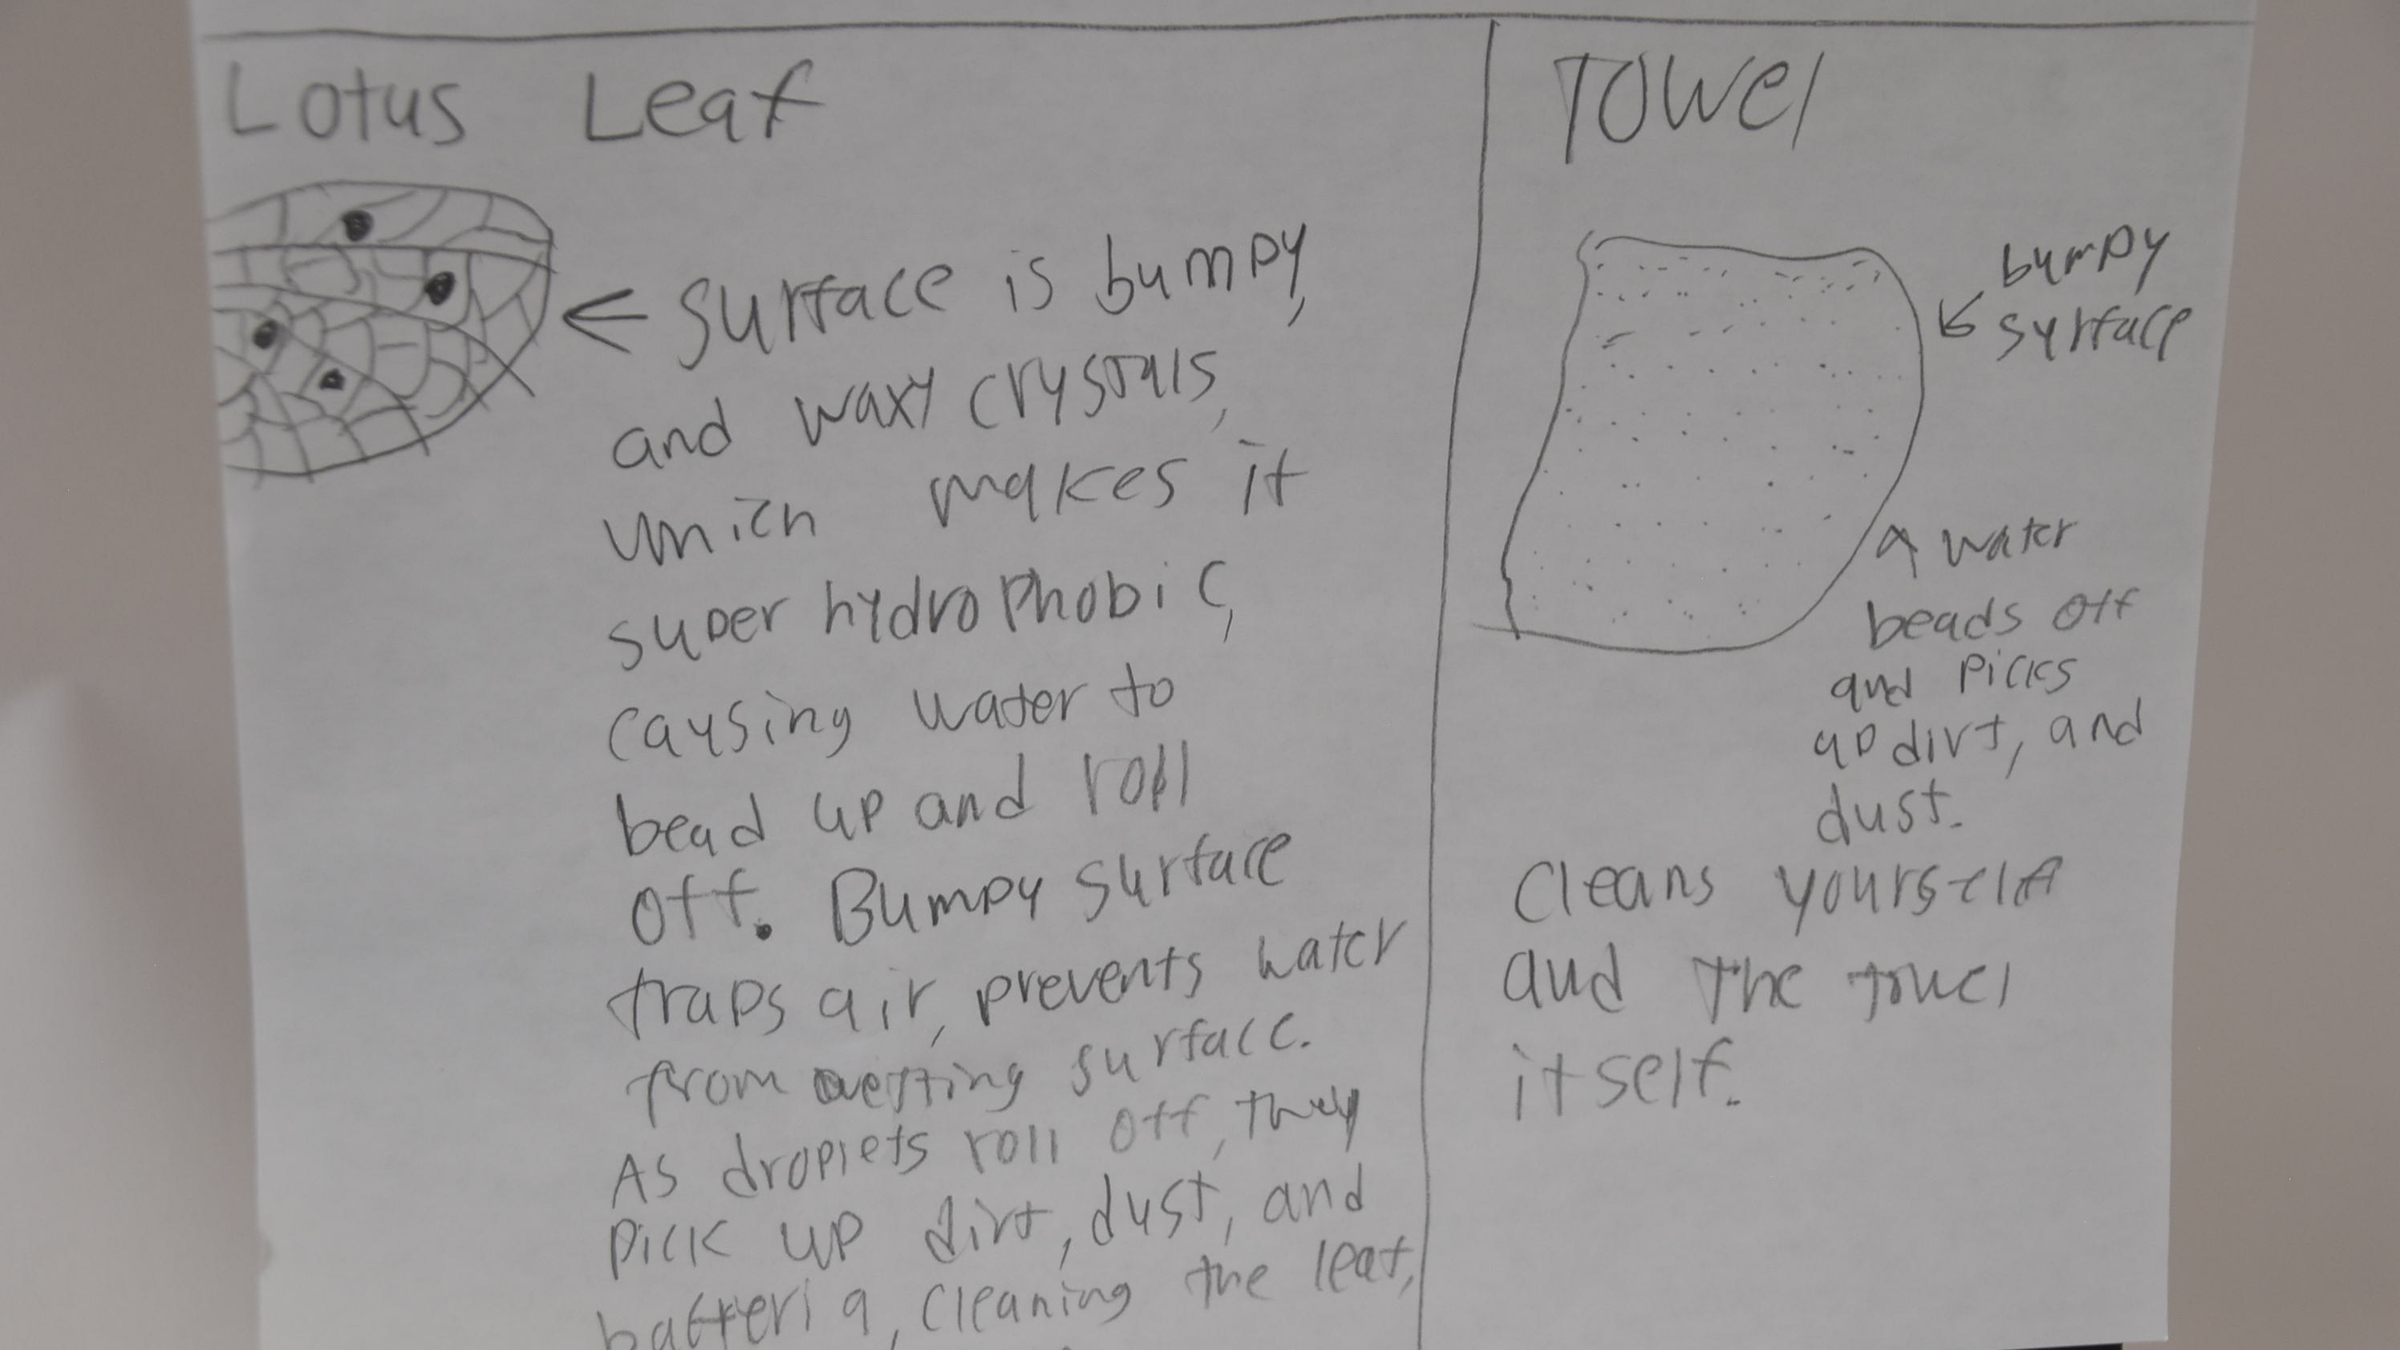 Lotus Leaf
← surface is bumpy,
and waxy crystals,
which makes it
super hydrophobic,
causing water to
bead up and roll
off. Bumpy surface
traps air, prevents water
from wetting surface.
As droplets roll off, they
pick up dirt, dust, and
batteria, cleaning the leaf,
Towel
bumpy
surface
water
beads off
and picks
up dirt, and
dust.
Cleans yourself
and the towel
itself.